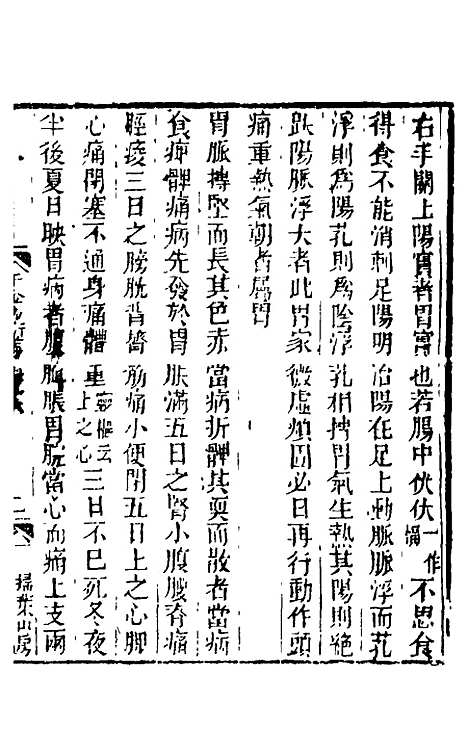 右手關上陽實者胃實也若腸中伏伏一作愊不思食
得食不能消刺足陽明治陽在足上動脈脈浮而芤
浮則為陽芤則為陰浮芤相摶胃氣生熱其陽則絕
趺陽脈浮大者此胃家微虛煩圊必日再行動作頭
痛重熱氣朝者屬胃
胃脈摶堅而長其色赤當病折髀其耎而散者當病
食痺髀痛病先發於胃脹滿五日之腎小腹腰脊痛
脛痠三日之膀胱背䏚筋痛小便閉五日上之心脾
心痛閉塞不通身痛體重靈樞云上之心三日不已死冬夜
半後夏日昳胃病者腹䐜脹胃脘當心而痛上支兩
掃葉山房